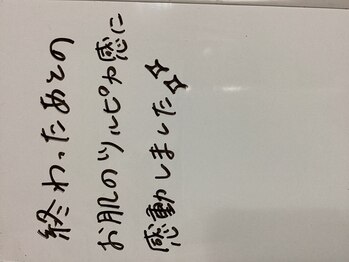 終わったあとの
お肌のツルピカ感に
感動しました☆☆